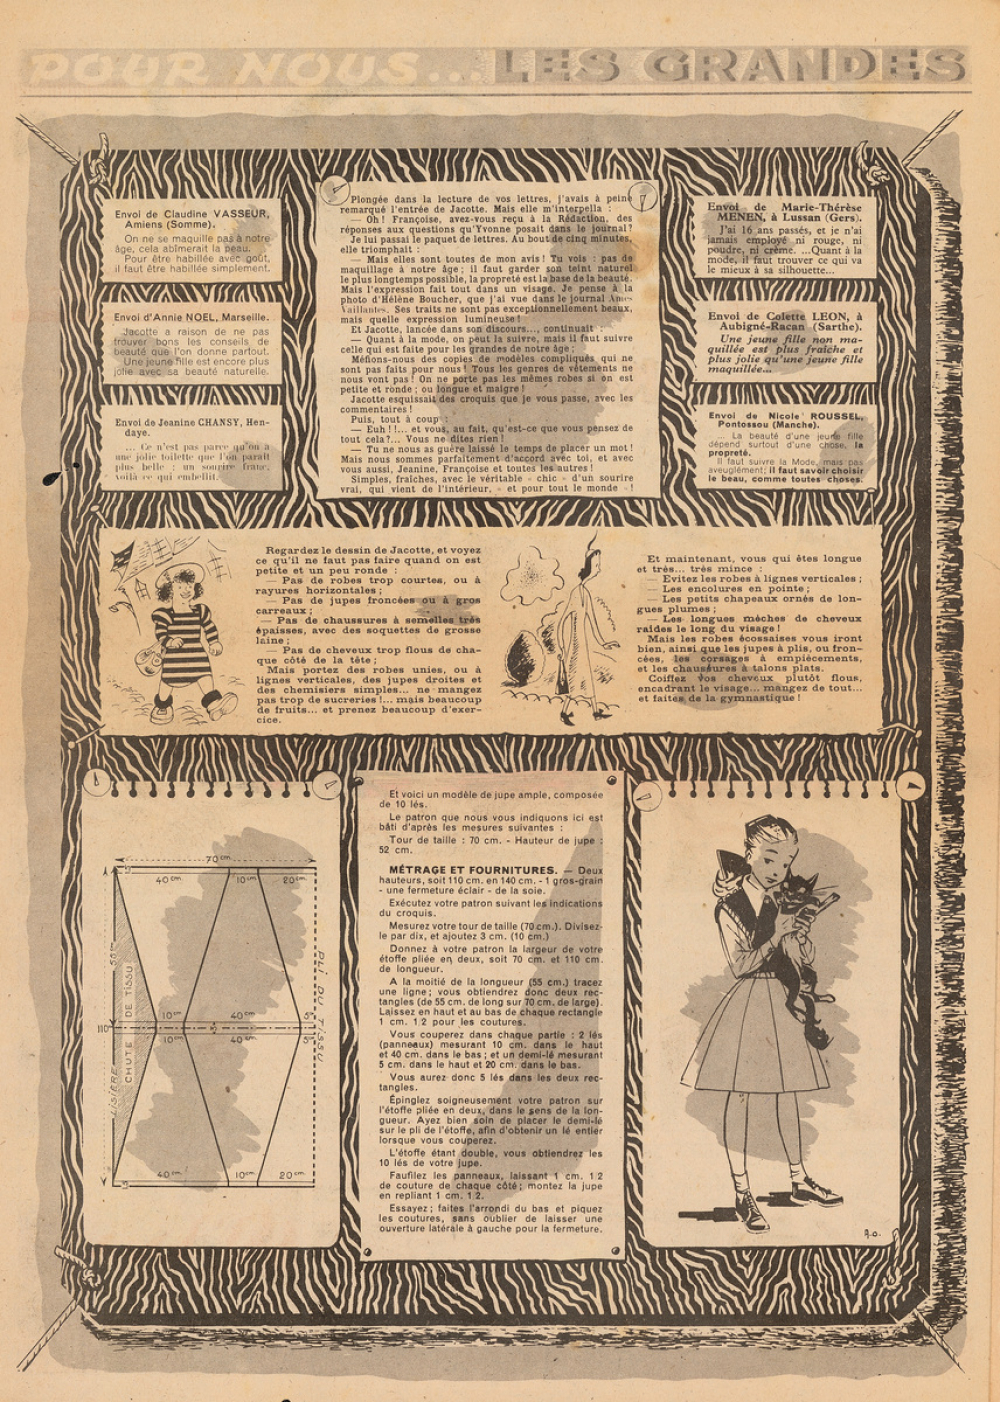 POUR NOUS... LES GRANDES
Envoi de Claudine VASSEUR,
Amiens (Somme).
On ne se maquille pas à notre
âge, cela abîmerait la peau.
Pour être habillée avec goût,
il faut être habillée simplement.
Envoi d'Annie NOEL, Marseille.
Jacotte a raison de ne pas
trouver bons les conseils de
beauté que l'on donne partout.
Une jeune fille est encore plus
jolie avec sa beauté naturelle.
Envoi de Jeanine CHANSY, Hen-
daye.
... Ce n'est pas parce qu'on a
une jolie toilette que l'on paraît
plus belle : un sourire franc,
voilà ce qui embellit.
Plongée dans la lecture de vos lettres, j'avais à peine
remarqué l'entrée de Jacotte. Mais elle m'interpella :
— Oh ! Françoise, avez-vous reçu à la Rédaction, des
réponses aux questions qu'Yvonne posait dans le journal ?
Je lui passai le paquet de lettres. Au bout de cinq minutes,
elle triomphait :
— Mais elles sont toutes de mon avis ! Tu vois : pas de
maquillage à notre âge ; il faut garder son teint naturel
le plus longtemps possible, la propreté est la base de la beauté.
Mais l'expression fait tout dans un visage. Je pense à la
photo d'Hélène Boucher, que j'ai vue dans le journal Ames
Vaillantes. Ses traits ne sont pas exceptionnellement beaux,
mais quelle expression lumineuse !
Et Jacotte, lancée dans son discours..., continuait :
— Quant à la mode, on peut la suivre, mais il faut suivre
celle qui est faite pour les grandes de notre âge ;
Méfions-nous des copies de modèles compliqués qui ne
sont pas faits pour nous ! Tous les genres de vêtements ne
nous vont pas ! On ne porte pas les mêmes robes si on est
petite et ronde ; ou longue et maigre !
Jacotte esquissait des croquis que je vous passe, avec les
commentaires !
Puis, tout à coup :
— Euh !!... et vous, au fait, qu'est-ce que vous pensez de
tout cela ?... Vous ne dites rien !
— Tu ne nous as guère laissé le temps de placer un mot !
Mais nous sommes parfaitement d'accord avec toi, et avec
vous aussi, Jeanine, Françoise et toutes les autres !
Simples, fraîches, avec le véritable « chic » d'un sourire
vrai, qui vient de l'intérieur, « et pour tout le monde » !
Envoi de Marie-Thérèse
MENEN, à Lussan (Gers).
J'ai 16 ans passés, et je n'ai
jamais employé ni rouge, ni
poudre, ni crème. ...Quant à la
mode, il faut trouver ce qui va
le mieux à sa silhouette...
Envoi de Colette LEON, à
Aubigné-Racan (Sarthe).
Une jeune fille non ma-
quillée est plus fraîche et
plus jolie qu'une jeune fille
maquillée...
Envoi de Nicole ROUSSEL,
Pontossou (Manche).
... La beauté d'une jeune fille
dépend surtout d'une chose, la
propreté.
Il faut suivre la Mode, mais pas
aveuglément; il faut savoir choisir
le beau, comme toutes choses.
Regardez le dessin de Jacotte, et voyez
ce qu'il ne faut pas faire quand on est
petite et un peu ronde :
— Pas de robes trop courtes, ou à
rayures horizontales ;
— Pas de jupes froncées ou à gros
carreaux ;
— Pas de chaussures à semelles très
épaisses, avec des soquettes de grosse
laine ;
— Pas de cheveux trop flous de cha-
que côté de la tête ;
Mais portez des robes unies, ou à
lignes verticales, des jupes droites et
des chemisiers simples... ne mangez
pas trop de sucreries !... mais beaucoup
de fruits... et prenez beaucoup d'exer-
cice.
Et maintenant, vous qui êtes longue
et très... très mince :
— Evitez les robes à lignes verticales ;
— Les encolures en pointe ;
— Les petits chapeaux ornés de lon-
gues plumes ;
— Les longues mèches de cheveux
raides le long du visage !
Mais les robes écossaises vous iront
bien, ainsi que les jupes à plis, ou fron-
cées, les corsages à empiècements,
et les chaussures à talons plats.
Coiffez vos cheveux plutôt flous,
encadrant le visage... mangez de tout...
et faites de la gymnastique !
70 cm.
40 cm. 10 cm. 20 cm.
55 cm.
LISIÈRE
CHUTE DE TISSU
PLI DU TISSU
110
10 cm. 40 cm. 5
10 cm. 40 cm. 5
40 cm. 10 cm. 20 cm.
Et voici un modèle de jupe ample, composée
de 10 lés.
Le patron que nous vous indiquons ici est
bâti d'après les mesures suivantes :
Tour de taille : 70 cm. - Hauteur de jupe :
52 cm.
MÉTRAGE ET FOURNITURES. — Deux
hauteurs, soit 110 cm. en 140 cm. - 1 gros-grain
- une fermeture éclair - de la soie.
Exécutez votre patron suivant les indications
du croquis.
Mesurez votre tour de taille (70 cm.). Divisez-
le par dix, et ajoutez 3 cm. (10 cm.)
Donnez à votre patron la largeur de votre
étoffe pliée en deux, soit 70 cm. et 110 cm.
de longueur.
A la moitié de la longueur (55 cm.) tracez
une ligne; vous obtiendrez donc deux rec-
tangles (de 55 cm. de long sur 70 cm. de large).
Laissez en haut et au bas de chaque rectangle
1 cm. 1 2 pour les coutures.
Vous couperez dans chaque partie : 2 lés
(panneaux) mesurant 10 cm. dans le haut
et 40 cm. dans le bas ; et un demi-lé mesurant
5 cm. dans le haut et 20 cm. dans le bas.
Vous aurez donc 5 lés dans les deux rec-
tangles.
Épinglez soigneusement votre patron sur
l'étoffe pliée en deux, dans le sens de la lon-
gueur. Ayez bien soin de placer le demi-lé
sur le pli de l'étoffe, afin d'obtenir un lé entier
lorsque vous couperez.
L'étoffe étant double, vous obtiendrez les
10 lés de votre jupe.
Faufilez les panneaux, laissant 1 cm. 1 2
de couture de chaque côté; montez la jupe
en repliant 1 cm. 1 2.
Essayez; faites l'arrondi du bas et piquez
les coutures, sans oublier de laisser une
ouverture latérale à gauche pour la fermeture.
A.O.